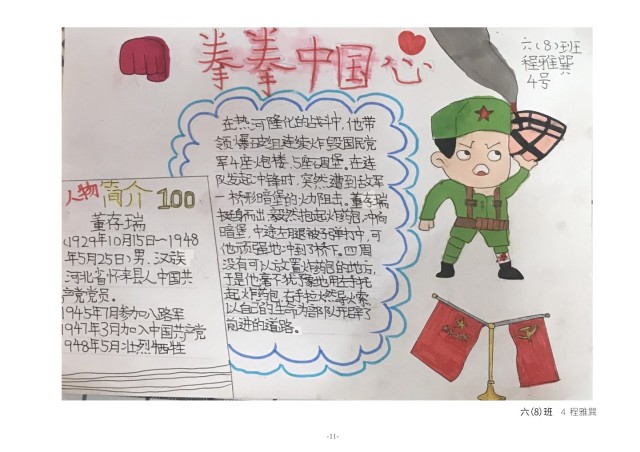 拳拳中国心
六(8)班
程雅巽
4号
在热河隆化的战斗中,他带
领爆破组连续炸毁国民党
军4座炮楼、5座碉堡。在连
队发起冲锋时,突然遭到敌军
一桥形暗堡的火力阻击。董存瑞
挺身而出,毅然抱起炸药包,冲向
暗堡,中途左腿被子弹打中,可
他顽强地冲到了桥下。四周
没有可以放置炸药包的地方,
于是他毫不犹豫地用左手托
起炸药包,右手拉燃导火索,
以自己的生命为部队开辟了
前进的道路。
人物简介100
董存瑞
(1929年10月15日~1948
年5月25日)男,汉族
河北省怀来县人中国共
产党党员。
1945年7月参加八路军
1947年3月加入中国共产党
1948年5月壮烈牺牲
六(8)班 4 程雅巽
-11-